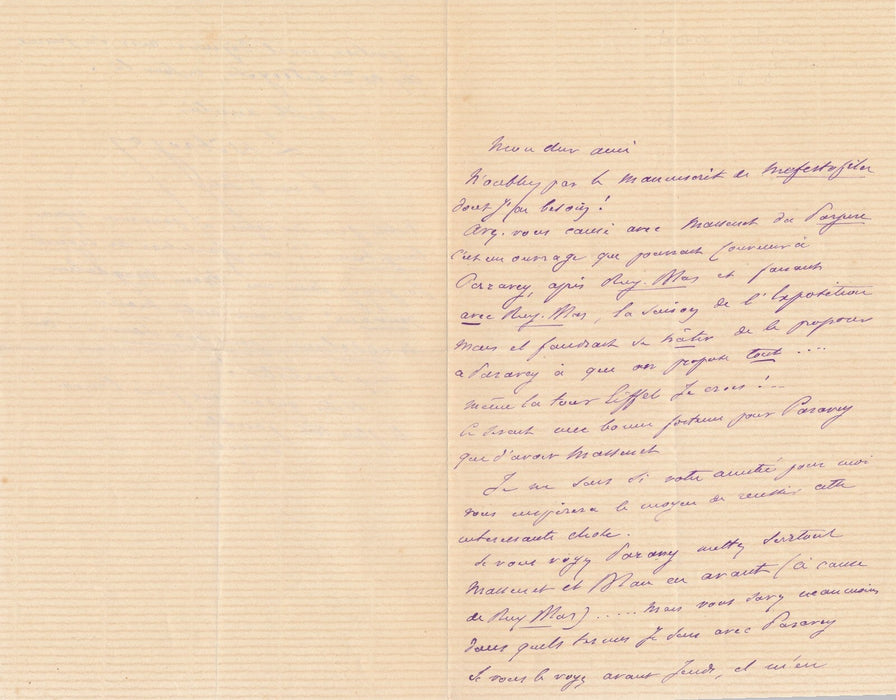 Mon cher ami
N'oubliez pas le manuscrit de Mefestofeles
dont j'ai besoin!
Avez-vous causé avec Massenet du
c'est un ouvrage que pourrait convenir à
Paravey, après Ruy-Blas et faisant
avec Ruy-Blas, la saison de l'Exposition
Mais il faudrait se hâter de le proposer
à Paravey à que on propose tout ....
même la tour Eiffel Je crois!...
Ce serait une bonne fortune pour Paravey
que d'avoir Massenet
Je ne sais si votre amitié pour moi
vous inspirera le moyen de réussir cette
intéressante chose.
Si vous voyez Paravey mettez surtout
Massenet et Blau en avant (à cause
de Ruy Blas) ..... Mais vous savez
dans quels termes Je suis avec Paravey
Si vous le voyez avant Jeudi, et m'en